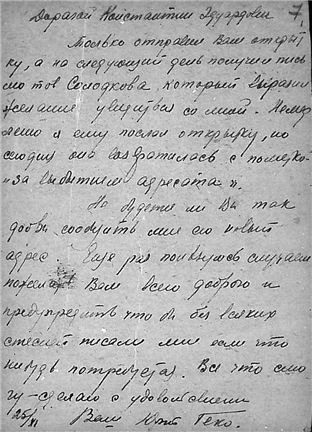 7
Дорогой Константин Эдуардович
Только отправил Вам открыт
ку, а на следующий день получил пись
мо тов Солодкова, который выразил
желание увидеться со мной. Немед
ленно я ему послал открытку, но
сегодня она возвратилась с пометкой
"за выбытием адресата".
Не будете ли Вы так
добры сообщить мне его новый
адрес. Еще раз пользуюсь случаем
пожелать Вам всего доброго и
предупредить что бы без всяких
стеснений писали мне если что
нибудь потребуется. Все что смо
гу - сделаю с удовольствием
25/XI Ваш